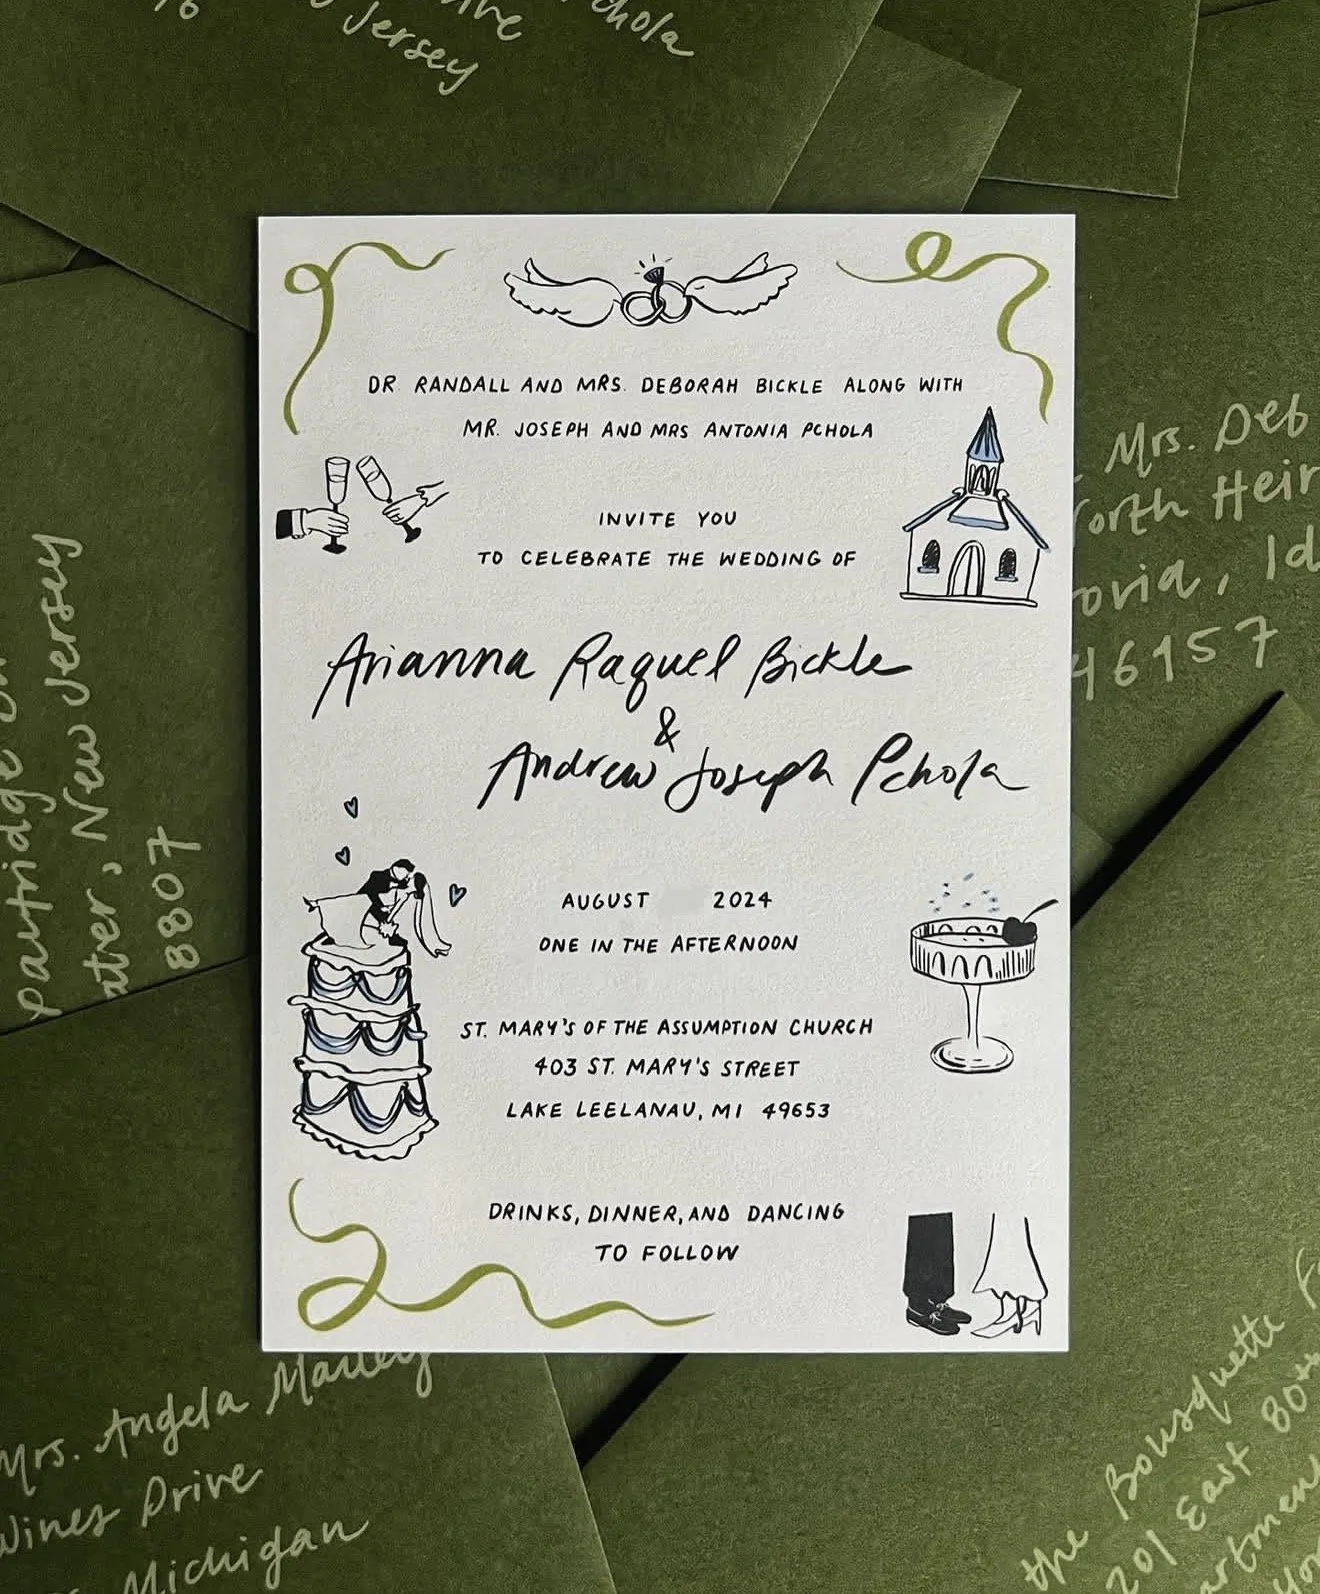 Jersey
DR. RANDALL AND MRS. DEBORAH BICKLE ALONG WITH
MR. JOSEPH AND MRS ANTONIA PCHOLA
INVITE YOU
TO CELEBRATE THE WEDDING OF
Arianna Raquel Bickle
&
Andrew Joseph Pchola
AUGUST 2024
ONE IN THE AFTERNOON
ST. MARY'S OF THE ASSUMPTION CHURCH
403 ST. MARY'S STREET
LAKE LEELANAU, MI 49653
DRINKS, DINNER, AND DANCING
TO FOLLOW
Mrs. Deb
46957
partridge
, New Jersey
8807
Mrs. Angela
Drive
Michigan
the Bousquette
201 East 80th